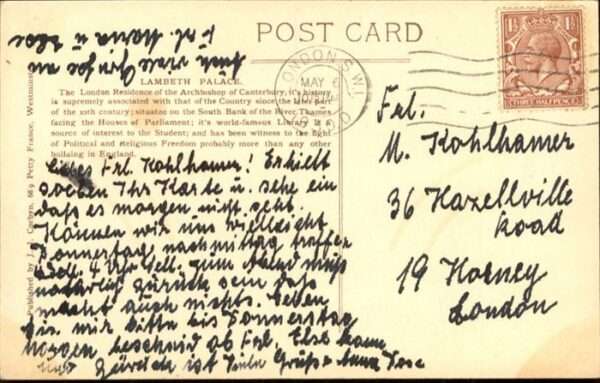 POST CARD
LONDON S.W.1
MAY 6
THREE HALFPENCE
LAMBETH PALACE.
The London Residence of the Archbishop of Canterbury, it's history
is supremely associated with that of the Country since the later part
of the 12th century; situated on the South Bank of the River Thames
facing the Houses of Parliament; it's world-famous Library is a
source of interest to the Student; and has been witness to the fight
of Political and Religious Freedom probably more than any other
building in England.
Auch viele Grüße an
Frl. Maria u
Liebes Frl. Kohlhamer! Erhielt
soeben Ihr Karte u. sehe ein
daß es morgen nicht geht.
Können wir uns vielleicht
Donnertag nachmittag treffen
4 Uhr zum Abend muß
natürlich zurück sein daß
macht auch nichts. Geben
sis mir bitte bis Donnerstag
morgen bescheid ob Frl. Else kann
und zurück ist Viele Grüße Anna
Frl.
M. Kohlhamer
36 Hazellville
Road
19 Horney
London
Published by J. J. Carbyn, Petty France, Westminster